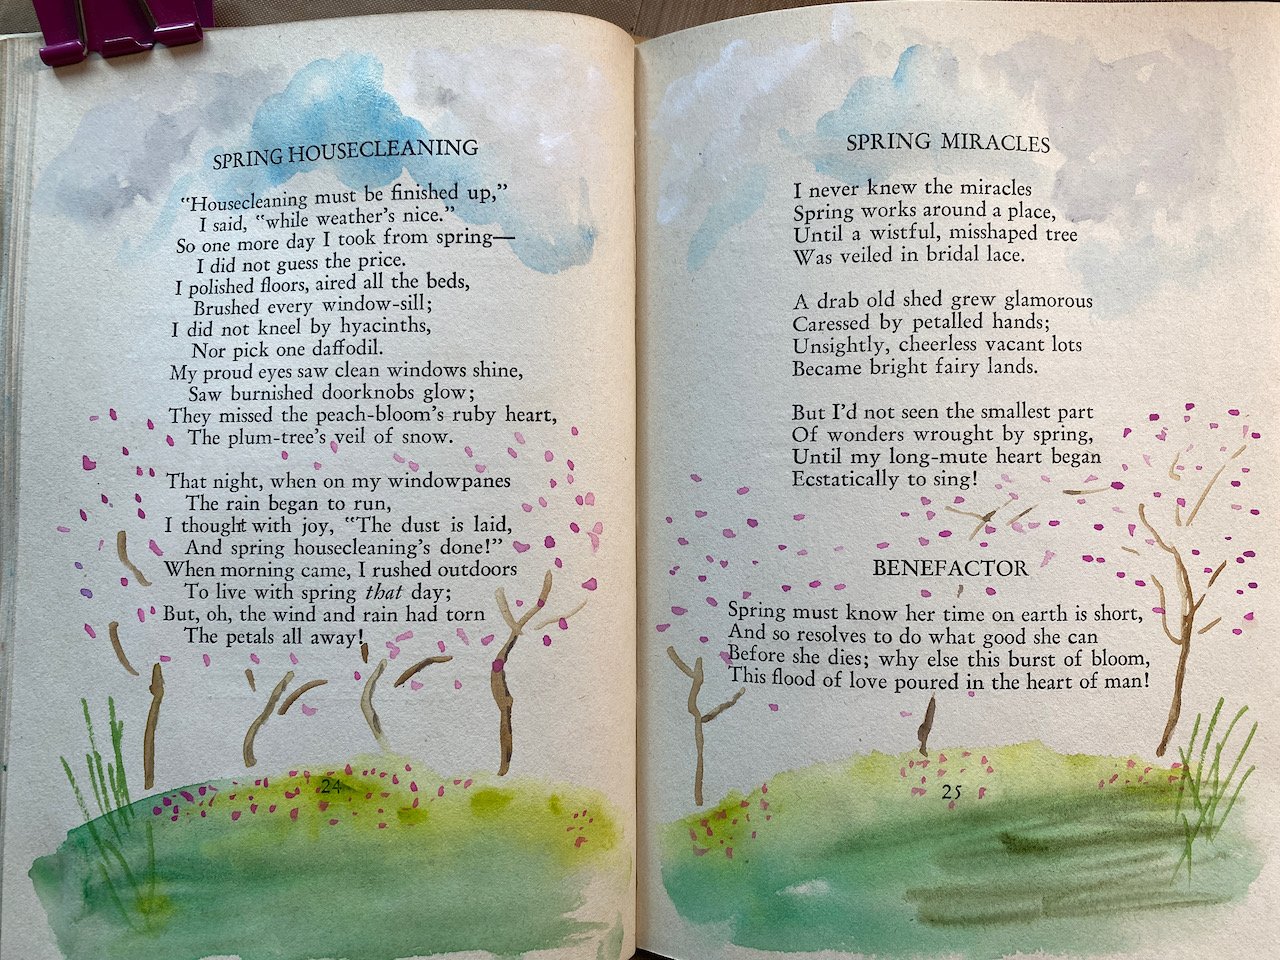 SPRING HOUSECLEANING
"Housecleaning must be finished up,"
I said, "while weather's nice."
So one more day I took from spring—
I did not guess the price.
I polished floors, aired all the beds,
Brushed every window-sill;
I did not kneel by hyacinths,
Nor pick one daffodil.
My proud eyes saw clean windows shine,
Saw burnished doorknobs glow;
They missed the peach-bloom's ruby heart,
The plum-tree's veil of snow.
That night, when on my windowpanes
The rain began to run,
I thought with joy, "The dust is laid,
And spring housecleaning's done!"
When morning came, I rushed outdoors
To live with spring that day;
But, oh, the wind and rain had torn
The petals all away!
24
SPRING MIRACLES
I never knew the miracles
Spring works around a place,
Until a wistful, misshaped tree
Was veiled in bridal lace.
A drab old shed grew glamorous
Caressed by petalled hands;
Unsightly, cheerless vacant lots
Became bright fairy lands.
But I'd not seen the smallest part
Of wonders wrought by spring,
Until my long-mute heart began
Ecstatically to sing!
BENEFACTOR
Spring must know her time on earth is short,
And so resolves to do what good she can
Before she dies; why else this burst of bloom,
This flood of love poured in the heart of man!
25